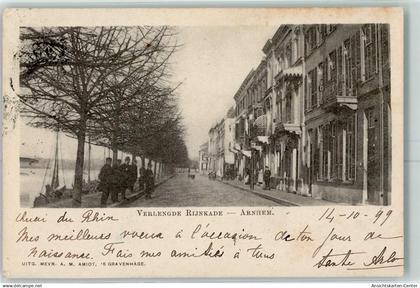 VERLENGDE RIJNKADE — ARNHEM.
Quai du Rhin
14-10-99
Mes meilleurs voeux à l'occasion de ton jour de
naissance. Fais mes amitiés à tous
UITG. MEVR. A. M. AMIOT, 'S GRAVENHAGE.
www.ansichtskarten-center.de
Ansichtskarten-Center